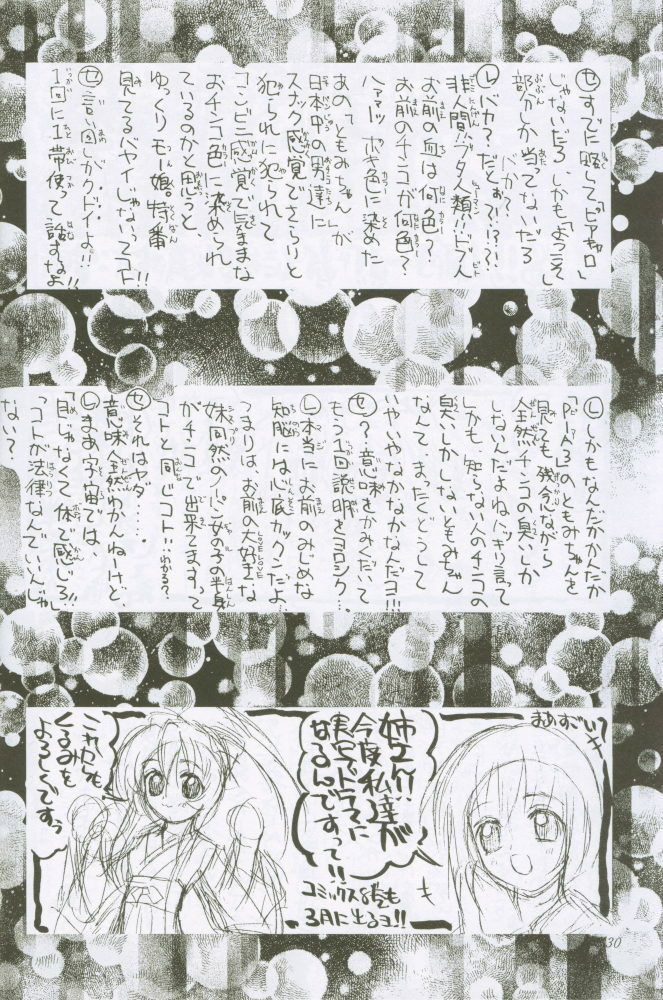 セすでに略して「ピアキャロ」
じゃないだろ、しかも「ようこそ」
部分しか当ってないだろ
バカ?
レバカ?だとぉぉ?!?!?!
お前の血は何色?
お前のチンコが何色?
あの「ともみちゃん」が
日本中の男達に
スナック感覚でさらりと
犯られに犯られて
コンビニ感覚で気ままな
おチンコ色に染められ
ているのかと思うと、
ゆっくりモー娘。特番
見てるバヤイじゃないってコト!!
セ言い回しがクドイよ!!
1回に1帯使って話すなよ!!
レしかもなんだかかんだか
のともみちゃんを
見ても残念ながら
全然チンコの臭いしか
しないんだよねハッキリ言って
しかも、知らない人のチンコの
臭いしかしないともみちゃん
なんて、まったくどうして
いやいやなかなかなんだヨ!!!
セ?意味をかみくだいて
もう1回説明をヨロシク…
レ本当にお前のみじめな
知能には心底カックンだよ…
つまりは、お前の大好きな
妹同然のノーパン女の子の半身
がチンコで出来てますって
コトと同じコト!!わかる?
セそれはヤダ……
意味全然わかんねーけど、
レまあ宇宙では、
「目じゃなくて体で感じろ!!」
ってコトが法律なんでいんじゃ
ない?
まあすごい♡
姉エー!!
今度私達が
実写ドラマに
なるんですって!!
コミックス8巻も
3月に出るヨ!!
これからも
くるみを
よろしくですっ
30